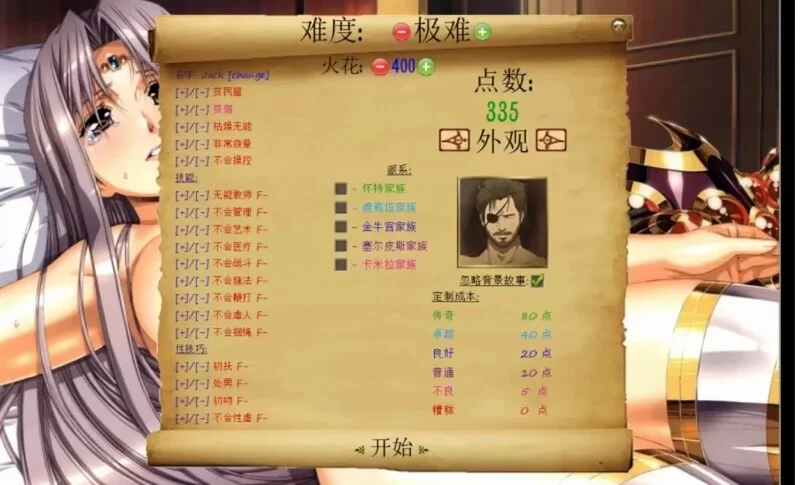 难度: 极难
火花: 400
名字: Jack [change]
点数:
335
外观
[+]/[-] 贫民窟
[+]/[-] 贫弱
[+]/[-] 枯燥无能
[+]/[-] 非常疲量
[+]/[-] 不会操控
技能:
[+]/[-] 无能教师 F-
[+]/[-] 不会管理 F-
[+]/[-] 不会艺术 F-
[+]/[-] 不会医疗 F-
[+]/[-] 不会战斗 F-
[+]/[-] 不会施法 F-
[+]/[-] 不会鞭打 F-
[+]/[-] 不会虐人 F-
[+]/[-] 不会捆绳 F-
性技巧:
[+]/[-] 初抚 F-
[+]/[-] 处男 F-
[+]/[-] 初吻 F-
[+]/[-] 不会性虐 F-
派系:
- 怀特家族
- 家族
- 金牛宫家族
- 塞尔皮斯家族
- 卡米拉家族
忽略背景故事:
定制成本:
传奇 80 点
卓越 40 点
良好 20 点
普通 10 点
不良 5 点
糟糕 0 点
开始